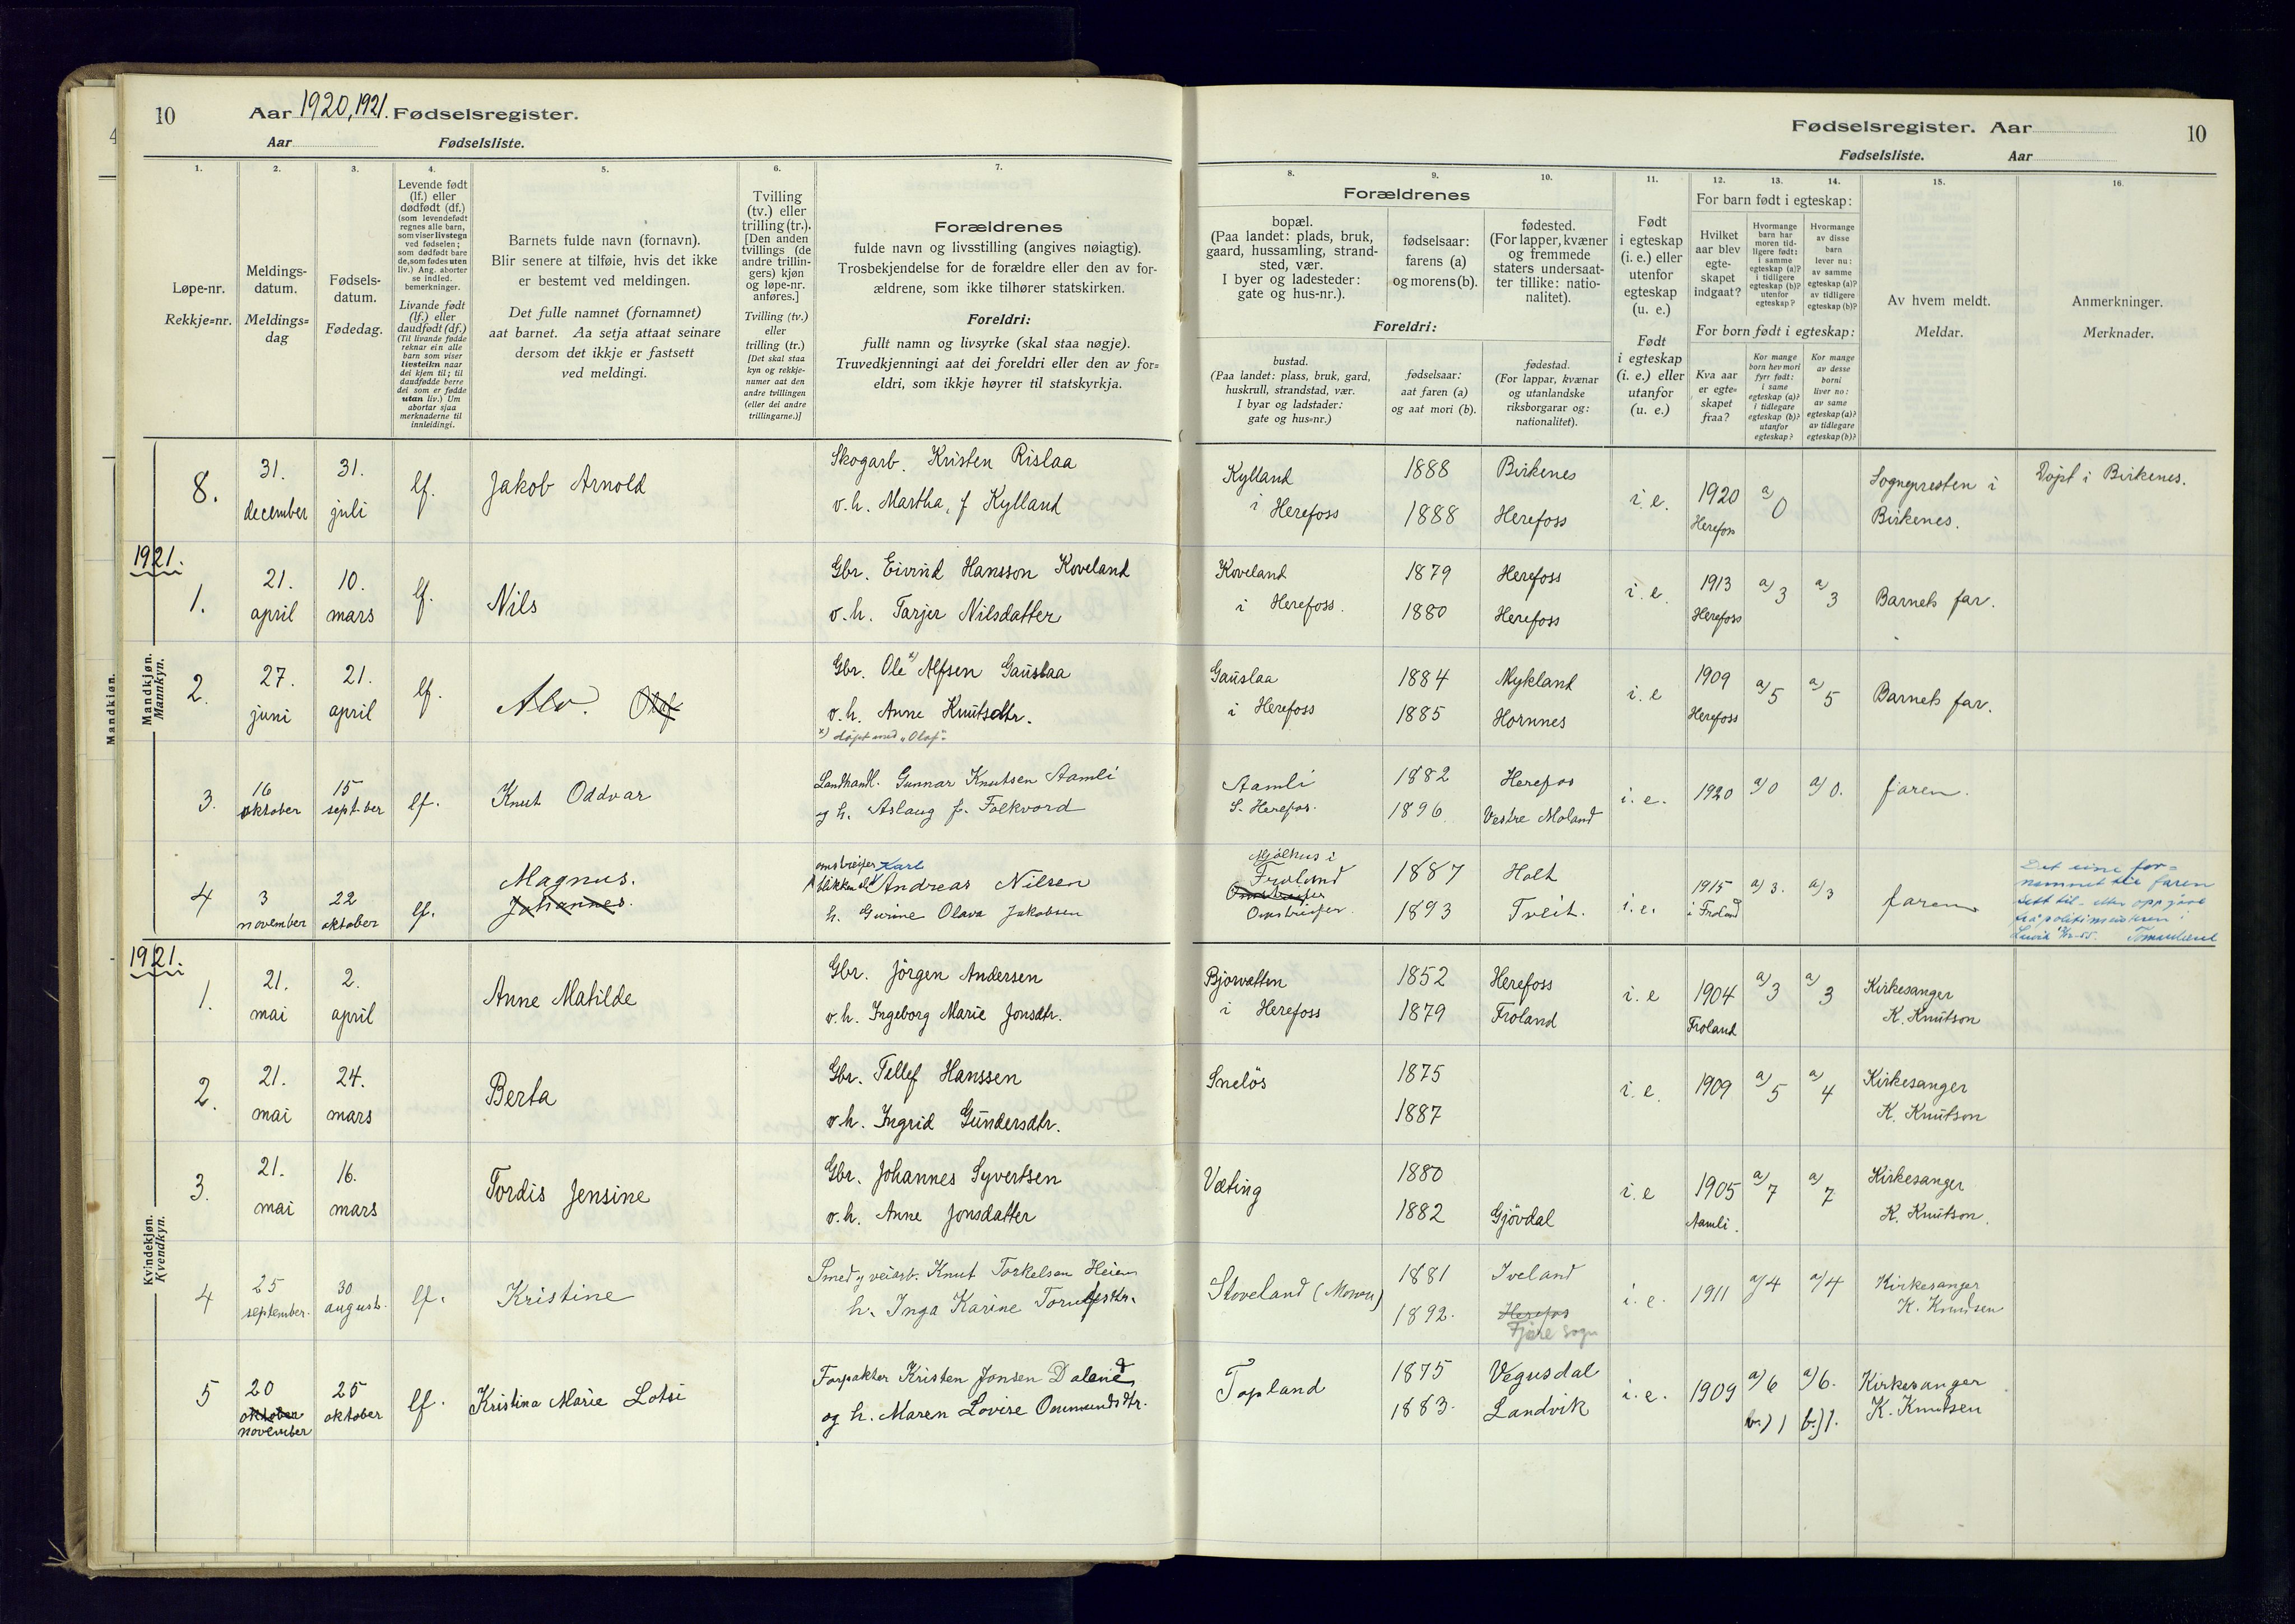 10
Aar 1920, 1921. Fødselsregister.
Aar Fødselsliste.
Fødselsregister. Aar
10
Fødselsliste. Aar
1.
Løpe-nr.
Rekkje=nr.
2.
Meldings-
datum.
Meldings=
dag
3.
Fødsels-
datum.
Fødedag.
4.
Levende født
(lf.) eller
dødfødt (df.)
(som levendefødt
regnes alle barn,
som viser livstegn
ved fødselen;
som dødfødt bare
de, som fødes uten
liv.) Ang. aborter
se indled.
bemerkninger.
Livande født
(lf.) eller
daudfødt (df.)
(Til livande fødde
reknar ein alle
barn som viser
livsteikn naar
dei kjem til; til
daudfødde berre
dei som er fødde
utan liv.) Um
abortar sjaa
merknaderne til
innleidingi.
5.
Barnets fulde navn (fornavn).
Blir senere at tilføie, hvis det ikke
er bestemt ved meldingen.
Det fulle namnet (fornamnet)
aat barnet. Aa setja attaat seinare
dersom det ikkje er fastsett
ved meldingi.
6.
Tvilling
(tv.) eller
trilling (tr.).
[Den anden
tvillings (de
andre trillin-
gers) kjøn
og løpe-nr.
anføres.]
Tvilling (tv.)
eller
trilling (tr.)
[Det skal staa
kyn og rekkje-
numer aat den
andre tvillingen
(eller dei andre
trillingarne.)]
7.
Forældrenes
fulde navn og livsstilling (angives nøiagtig).
Trosbekjendelse for de forældre eller den av for-
ældrene, som ikke tilhører statskirken.
Foreldri:
fullt namn og livsyrke (skal staa nøgje).
Truvedkjenningi aat dei foreldri eller den av for=
eldri, som ikkje høyrer til statskyrkja.
8.
Forældrenes
bopæl.
(Paa landet: plads, bruk,
gaard, hussamling, strand-
sted, vær.
I byer og ladesteder:
gate og hus-nr.).
Foreldri:
bustad.
(Paa landet: plass, bruk, gard,
huskrull, strandstad, vær.
I byar og ladstader:
gate og hus=nr.)
9.
fødselsaar:
farens (a)
og morens (b).
fødselsaar:
aat faren (a)
og aat mori (b).
10.
fødested.
(For lapper, kvæner
og fremmede
staters undersaat-
ter tillike: natio-
nalitet).
fødestad.
(For lappar, kvænar
og utanlandske
riksborgarar og:
nationalitet).
11.
Født
i egteskap
(i. e.) eller
utenfor
egteskap
(u. e.)
Født
i egteskap
(i. e.) eller
utanfor
(u. e.)
12. 13. 14.
For barn født i egteskap:
Hvilket
aar blev
egte-
skapet
indgaat?
Hvormange
barn har
moren tid-
ligere født:
i samme
egteskap (a)?
i tidligere
egteskap (b)?
utenfor
egteskap?
Hvormange
av disse
barn
lever nu:
av samme
egteskap (a)?
av tidligere
egteskap (b)?
For born født i egteskap:
Kva aar
er egte=
skapet
fraa?
Kor mange
born hev mori
fyrr født:
i same
egteskap (a)?
i tidlegare
egteskap (b)?
utanfor
egteskap?
Kor mange
av desse
borni
liver no:
av same
egteskap (a)?
av tidlegare
egteskap (b)?
15.
Av hvem meldt.
Meldar.
16.
Anmerkninger.
Merknader.
Mandkjøn.
Mandkjøn.
Mannkyn.
8. 31. december 31. juli lf. Jakob Arnold
Skogarb. Kristen Rislaa
o. h. Martha, f Kylland
Kylland i Herefoss
1888 Birkenes
1888 Herefoss
i. e. 1920 Herefoss a) 0
Sognepresten i
Birkenes.
Døpt i Birkenes.
1921.
1. 21. april 10. mars lf. Nils
Gbr. Eivind Hansson Koveland
o. h. Tarjer Nilsdatter
Koveland i Herefoss.
1879 Herefoss
1880 Herefoss
i. e. 1913 Herefoss a) 3 a) 3 Barnets far.
2. 27. juni 21. april lf. Alv. Olaf
Gbr. Ole x) Alfsen Gauslaa
o. h. Anne Knutsdtr.
x) døpt med „Olaf".
Gauslaa i Herefoss
1884 Mykland
1885 Hornnes
i. e 1909 Herefoss a) 5 a) 5 Barnets far.
3. 16 oktober 15 sept.ber lf. Knut Oddvar
Landhandl. Gunnar Knutsen Aamli
og h. Aslaug f. Folkvord
Aamli
S. Herefos.
1882 Herefos
1896 Vestre Moland
i. e. 1920 a) 0 a) 0. faren.
4 3 november 22 oktober lf. Magnus. Johannes.
omstreifer Karl
Andreas Nilsen
h. Gurine Olava Jakobsen
Mjålhus i
Froland
Omstreifer
Omstreifer.
1887 Holt
1893 Tveit.
i. e. 1915 i Froland a) 3. a) 3 faren
Det eine for-
nammet til faren
sett til - etter oppgave
frå politimeisteren i
1921.
Kvindekjøn.
Kvendkyn.
1. 21. mai 2. april Anne Matilde
Gbr. Jörgen Andersen
o. h. Ingeborg Marie Jonsdtr.
Bjorvatten
i Herefoss
1852 Herefoss
1879 Froland
i. e 1904 Froland a) 3 a) 3
Kirkesanger
K. Knutson
2. 21. mai 24. mars Berta
Gbr. Tellef Hanssen
o. h. Ingrid Gundersdtr.
Snelös
1875
1887
i. e. 1909 a) 5 a) 4
Kirkesanger
K. Knutson
3. 21. mai 16. mars Tordis Jensine
Gbr. Johannes Syvertsen
o. h. Anne Jonsdatter
Væting
1880
1882 Gjövdal
i. e 1905 Aamli. a) 7 a) 7
Kirkesanger
K. Knutson.
4 25 september. 30 august. lf. Kristine
Smed og veiarb. Knut Torkelsen Heien
h. Inga Karine
Stoveland
1881 Iveland
1892. Herefos
Fjære sogn
i. e. 1911 a) 4 a) 4
Kirkesanger
K. Knudsen
5 20 oktober november 25 oktober lf. Kristina Marie Lotsi
Forpakter Kristen Jonsen Dalene
og h. Maren Lovise Ommundsdtr.
Topland
1875 Vegusdal
1883. Landvik
i. e. 1909 a) 6 a) 6.
b.) 1 b.) 1.
Kirkesanger
K. Knudsen